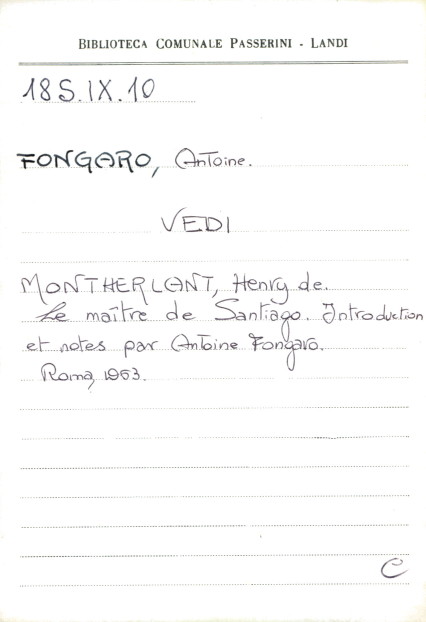 BIBLIOTECA COMUNALE PASSERINI - LANDI
18 S.IX.10
FONGARO, Antoine.
VEDI
MONTHERLANT, Henry de.
Le maître de Santiago. Introduction
et notes par Antoine Fongaro.
Roma, 1963.
C